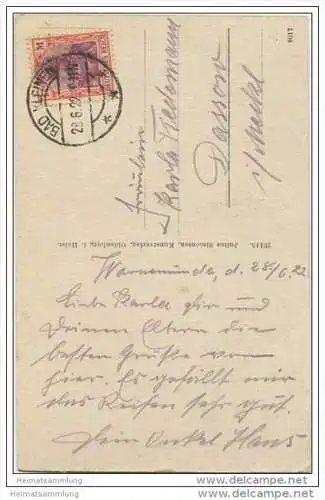 BAD KLEINEN
28.6.22
Fräulein
Karla Tiedemann
Dassow
i/Meckl
9017
Julius Simonsen, Kunstverlag, Oldenburg i. Holst.
Warnemünde, d. 28/6.22
Liebe Karla Dir und
Deinen Eltern die
besten Grüße von
hier. Es gefällt mir
das Reisen sehr gut.
Dein Onkel Hans
Heimatsammlung
www.heimatsammlung.de
Heimatsammlung
www.heimatsammlung.de